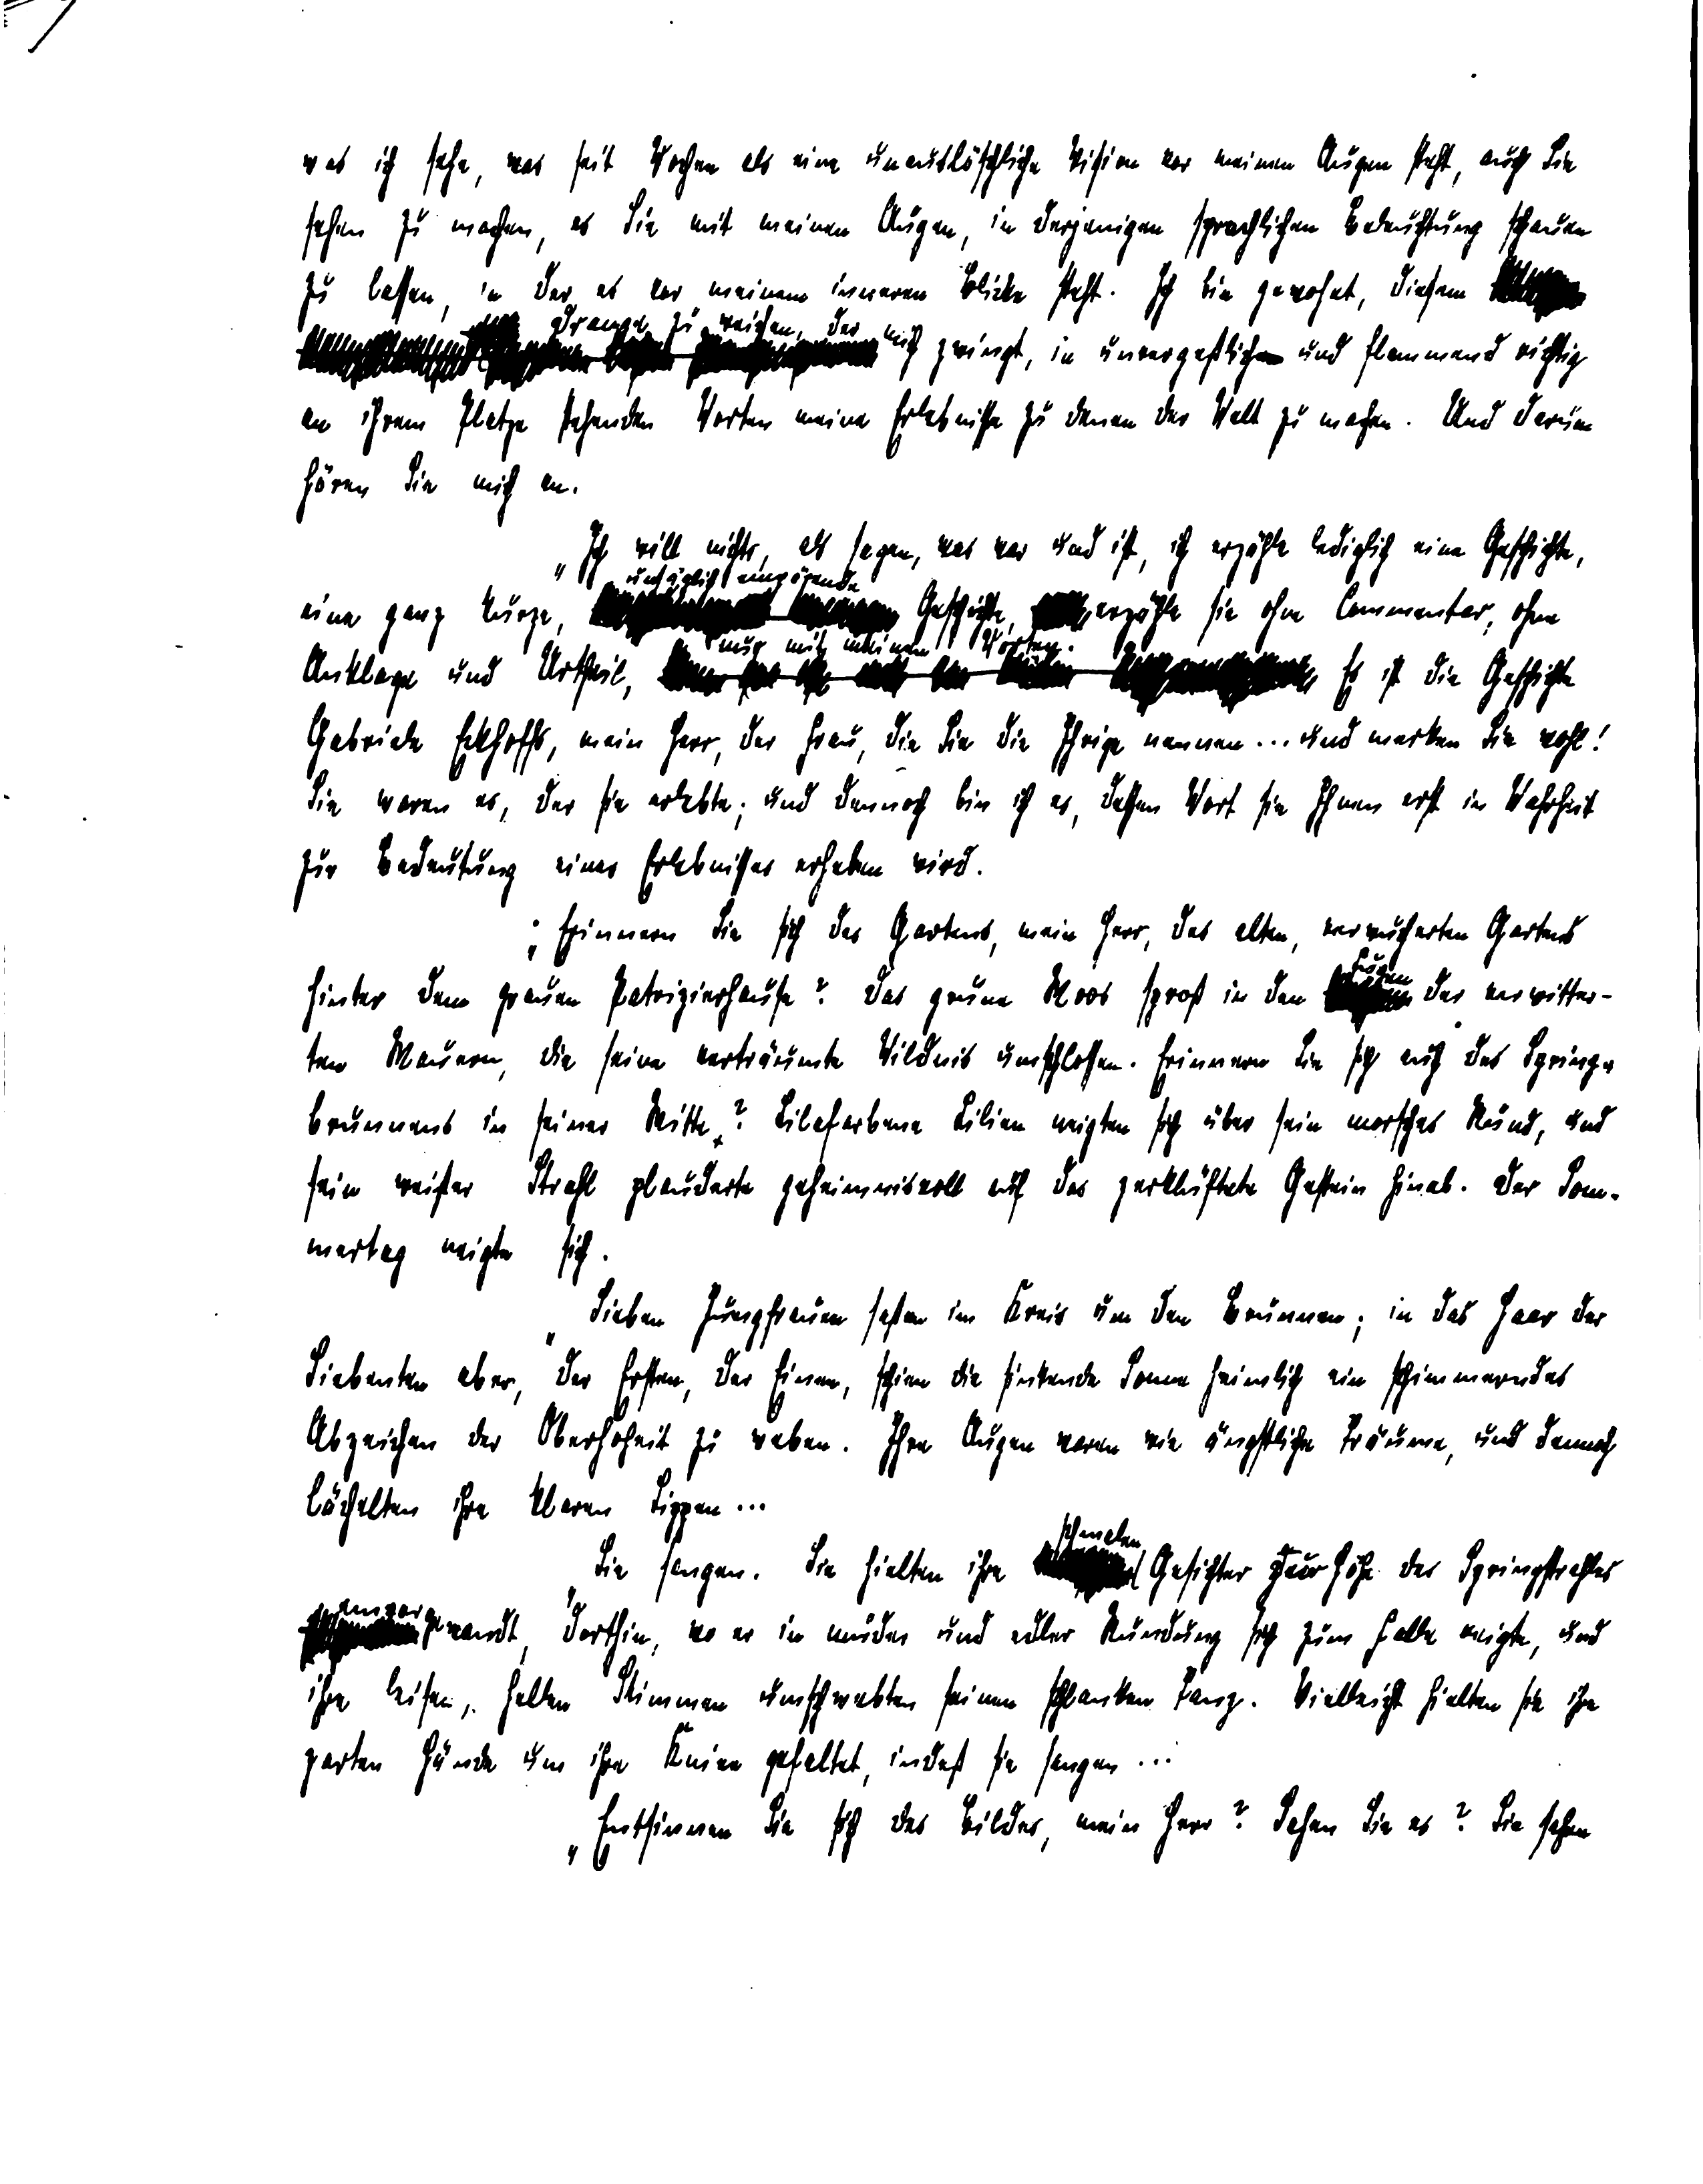 was ich sehe, was seit Wochen als eine unauslöschliche Vision vor meinen Augen steht, auch Sie
sehen zu machen, es Sie mit meinen Augen, in derjenigen sprachlichen Beleuchtung schauen
zu lassen, in der es vor meinem inneren Blicke steht. Ich bin gewohnt, diesem
Drange zu weichen, der mich zwingt, in unvergeßlich und flammend richtig
an ihrem Platze stehenden Worten meine Erlebnisse zu denen der Welt zu machen. Und darum
hören Sie mich an.
„Ich will nichts, als sagen, was war und ist, ich erzähle lediglich eine Geschichte,
eine ganz kurze, unsäglich empörende Geschichte, erzähle sie ohne Commentar, ohne
Anklage und Urtheil, nur mit meinen Worten. Es ist die Geschichte
Gabriele Eckhoffs, mein Herr, der Frau, die Sie die Ihrige nennen... und merken Sie wohl!
Sie waren es, der sie erlebte; und dennoch bin ich es, dessen Wort sie Ihnen erst in Wahrheit
zur Bedeutung eines Erlebnisses erheben wird.
„Erinnern Sie sich des Gartens, mein Herr, des alten, verwucherten Gartens
hinter dem grauen Patrizierhause? Das grüne Moos sproß in den Fugen der verwitter-
ten Mauern, die seine verträumte Wildnis umschlossen. Erinnern Sie sich auch des Spring-
brunnens in seiner Mitte? Lilafarbene Lilien neigten sich über sein morsches Rund, und
sein weißer Strahl plauderte geheimnisvoll auf das zerklüftete Gestein hinab. Der Som-
mertag neigte sich.
„Sieben Jungfrauen saßen im Kreis um den Brunnen; in das Haar der
Siebenten aber, der Ersten, der Einen, schien die sinkende Sonne heimlich ein schimmerndes
Abzeichen der Oberhoheit zu weben. Ihre Augen waren wie ängstliche Träume, und dennoch
lächelten ihre klaren Lippen...
„Sie sangen. Sie hielten ihre schmalen Gesichter zur Höhe des Springstrahles
emporgewandt, dorthin, wo er in müder und edler Rundung sich zum Falle neigte, und
ihre leisen, hellen Stimmen umschwebten seinen schlanken Tanz. Vielleicht hielten sie ihre
zarten Hände um ihre Kniee gefaltet, indeß sie sangen...
„Entsinnen Sie sich des Bildes, mein Herr? Sahen Sie es? Sie sahen